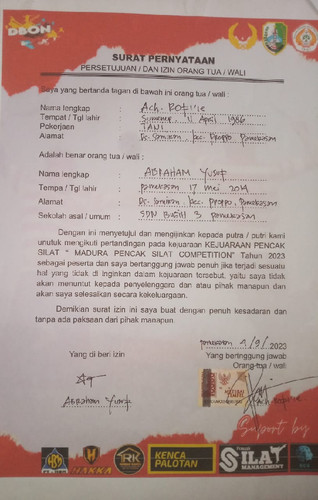 DBON
SURAT PERNYATAAN
PERSETUJUAN / DAN IZIN ORANG TUA / WALI
Saya yang bertanda tagan di bawah ini orang tua / wali :
Nama lengkap : Ach. Rofi'ie
Tempat / Tgl lahir : Sumenep, 11 April 1986
Pekerjaan : TANI
Alamat : Ds. Samiran, kec. Proppo, Pamekasan
Adalah benar orang tua / wali :
Nama lengkap : ABRAHAM Yusuf
Tempa / Tgl lahir : Pamekasan 17 Mei 2014
Alamat : Ds. Samiran, kec. Proppo, Pamekasan
Sekolah asal / umum : SDN Bugih 3 Pamekasan
Dengan ini menyetujui dan mengijinkan kepada putra / putri kami
unutuk mengikuti pertandingan pada kejuaraan KEJUARAAN PENCAK
SILAT " MADURA PENCAK SILAT COMPETITION" Tahun 2023
sebagai peserta dan saya bertanggung jawab penuh jika terjadi sesuatu
hal yang tidak di inginkan dalam kejuaraan tersebut, yaitu saya tidak
akan menuntut kepada penyelenggaro dan atau pihak manapun dan
akan saya selesaikan secara kekeluargaan.
Domikian surat izin ini saya buat dengan penuh kesadaran dan
tanpa ada paksaan dari pihak manapun.
Pamekasan 9/9/2023
Yang di beri izin
Yang bertinggung jawab
Orang tua / wali
Abraham Yusuf
Ach. Rofi'ie
Suport by
HAKKA
RK
KENCA
PALOTAN
SILAT
MANAGEMENT